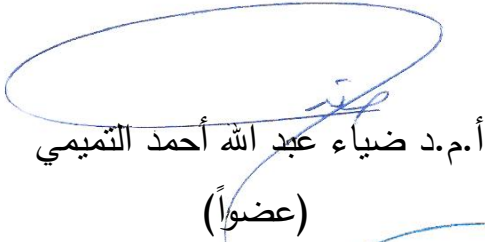 أ.م.د ضياء عبد الله أحمد التميمي
(عضواً)